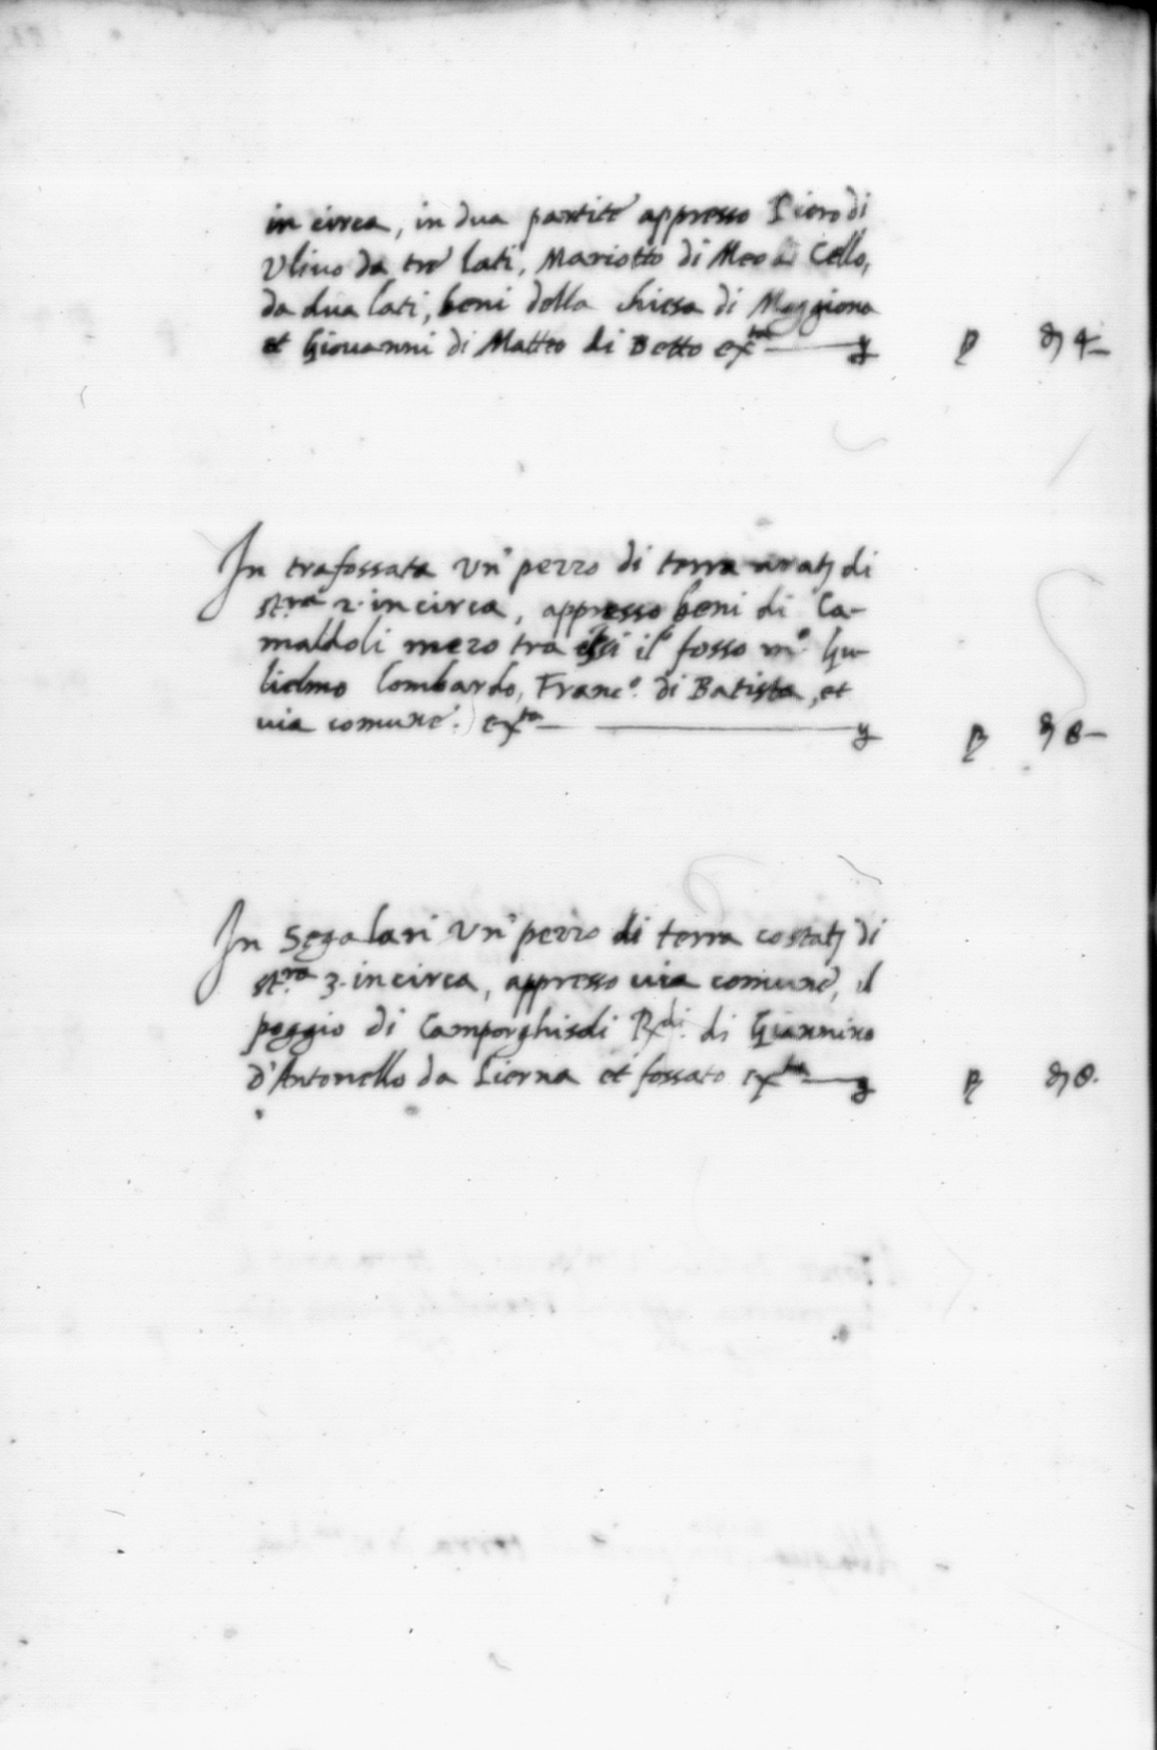 in circa, in dua partite appresso Piero di
Ulivo da tre lati, Mariotto di Meo di Cello,
da dua lati, beni della chiesa di Moggiona
et Giovanni di Matteo di Betto ex
In trafossata un pezzo di terra di
st.ra 2. in circa, appresso beni di Ca-
maldoli mezo tra essi il fosso m.o Gu-
lielmo Lombardo, Franc.o di Batista, et
via comune. ex
In Segalari un pezzo di terra di
st.ra 3. in circa, appresso via comune, il
poggio di Camporghisoli Rx.di di Giannino
d'Antonello da Lierna et fossato ex